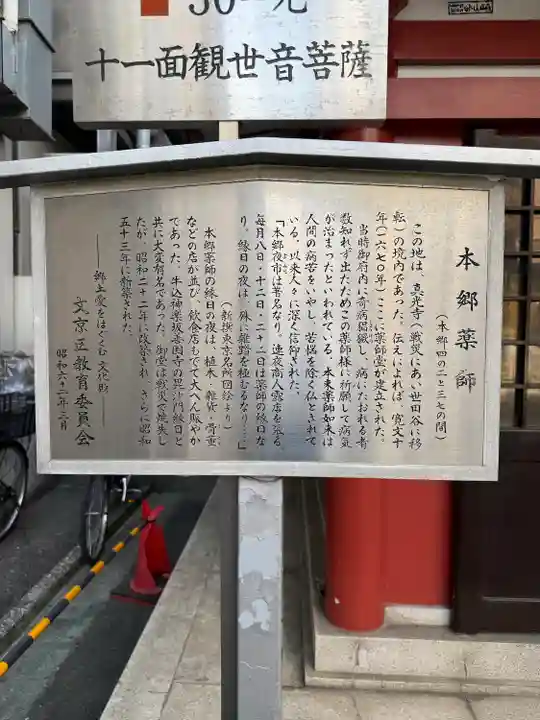 十一面観世音菩薩
本郷薬師
(本郷四の二と三七の間)
この地は、真光寺(戦災にあい世田谷に移
転)の境内であった。伝えによれば、寛文十
年(一六七〇年)ここに薬師堂が建立された。
当時御府内に奇病猖獗し、病にたおれる者
数知れず出たためこの薬師様に祈願して病気
が治まったといわれている。本来薬師如来は
人間の病苦をいやし、苦悩を除く仏とされて
いる。以来人々に深く信仰された。
「本郷夜市は著名なり、連夜商人露店を張る。
毎月八日・十二日・二十二日は薬師の縁日な
り。縁日の夜は、殊に雑踏を極むるなり……」
(新撰東京名所図絵より)
本郷薬師の縁日の夜は、植木・雑貨・骨董
などの店が並び、飲食店もでて大へん賑やか
であった。牛込神楽坂善国寺の毘沙門縁日と
共に大変有名であった。御堂は戦災で焼失し
たが、昭和二十二年に改築され、さらに昭和
五十三年に新築された。
――郷土愛をはぐくむ文化財――
文京区教育委員会
昭和六十二年三月